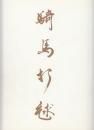 騎馬打毬